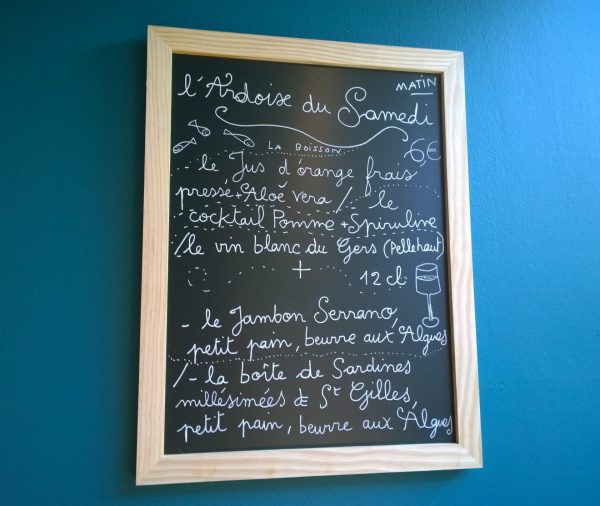 MATIN
l'Ardoise du Samedi
LA BOISSON
6€
- le Jus d'orange frais
presse + Aloë vera /- le
cocktail Pomme + Spiruline
/le vin blanc du Gers (Pellehaut)
+
12 cl
- le Jambon Serrano,
petit pain, beurre aux Algues
/- la boîte de Sardines
millésimées de St Gilles,
petit pain, beurre aux Algues